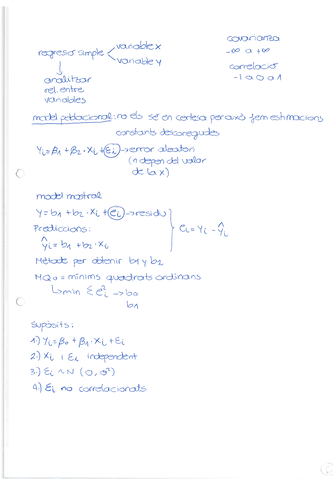 regressió simple variable x
variable y
covariança
-∞ a +∞
correlació
-1 a 0 a 1
analitzar
rel. entre
variables
model poblacional: no els sé en certesa per això fem estimacions
constants desconegudes
Yi = β1 + β2 · Xi + εi → error aleatori
(n depen del valor
de la x)
model mostral
Y = b1 + b2 · Xi + ei → residu
Prediccions:
ei = Yi - Ŷi
ŷi = b1 + b2 · Xi
Mètode per obtenir b1 y b2
MQO = mínims quadrats ordinaris
↳ min Σ ei² → b0
b1
Supòsits:
1) Yi = β0 + β1 · Xi + Ei
2) Xi i Ei independent
3) Ei ~ N (0, σ²)
4) Ei no correlacionats